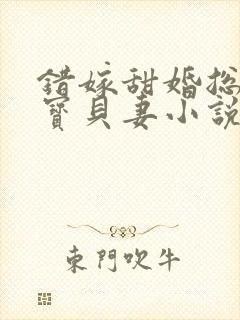 錯嫁甜婚总
寶貝妻小說
東門吹牛